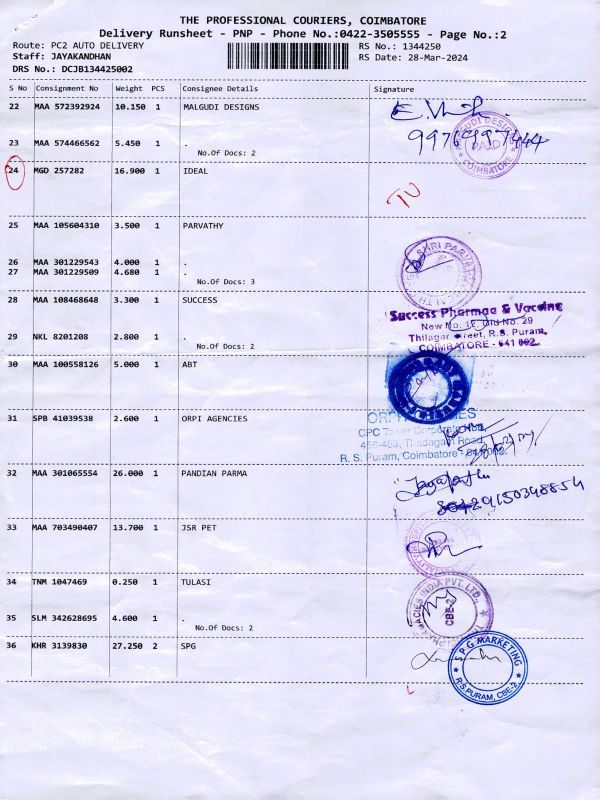 THE PROFESSIONAL COURIERS, COIMBATORE
Delivery Runsheet - PNP - Phone No.:0422-3505555 - Page No.:2
Route: PC2 AUTO DELIVERY
RS No.: 1344250
Staff: JAYAKANDHAN
RS Date: 28-Mar-2024
DRS No.: DCJB134425002
S No Consignment No Weight PCS Consignee Details Signature
22 MAA 572392924 10.150 1 MALGUDI DESIGNS
9976997444
MALGUDI DESIGNS PAID COIMBATORE
23 MAA 574466562 5.450 1 .
No.Of Docs: 2
24 MGD 257282 16.900 1 IDEAL
25 MAA 105604310 3.500 1 PARVATHY
SHRI PARVA
26 MAA 301229543 4.000 1 .
27 MAA 301229509 4.680 1 .
No.Of Docs: 3
28 MAA 108468648 3.300 1 SUCCESS
Success Pharmaa & Vaccine
New No. 12, Old No. 29
Thilagar Street, R.S. Puram,
COIMBATORE - 641 002.
29 NKL 8201208 2.800 1 .
No.Of Docs: 2
30 MAA 100558126 5.000 1 ABT
31 SPB 41039538 2.600 1 ORPI AGENCIES
ORPI AGENCIES
CPC Tower Corporate Hub,
Thadagam Road,
R. S. Puram, Coimbatore - 641 002.
32 MAA 301065554 26.000 1 PANDIAN PARMA
33 MAA 703490407 13.700 1 JSR PET
34 TNM 1047469 0.250 1 TULASI
PHARMACIES INDIA PVT. LTD. CBE-2
35 SLM 342628695 4.600 1 .
No.Of Docs: 2
36 KHR 3139830 27.250 2 SPG
S P G MARKETING
R.S.PURAM, CBE-2.